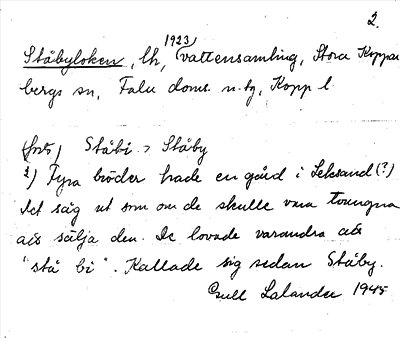 2.
1923
Ståbyloken, lh, vattensamling, Stora Koppar
bergs sn, Falu doms. n. tg, Kopp l.
(forts) Ståbi > Ståby
2) Fyra bröder hade en gård i Leksand (?)
Det såg ut som om de skulle vara tvungna
att sälja den. De lovade varandra att
"stå bi". Kallade sig sedan Ståby.
Gull Lalander 1945